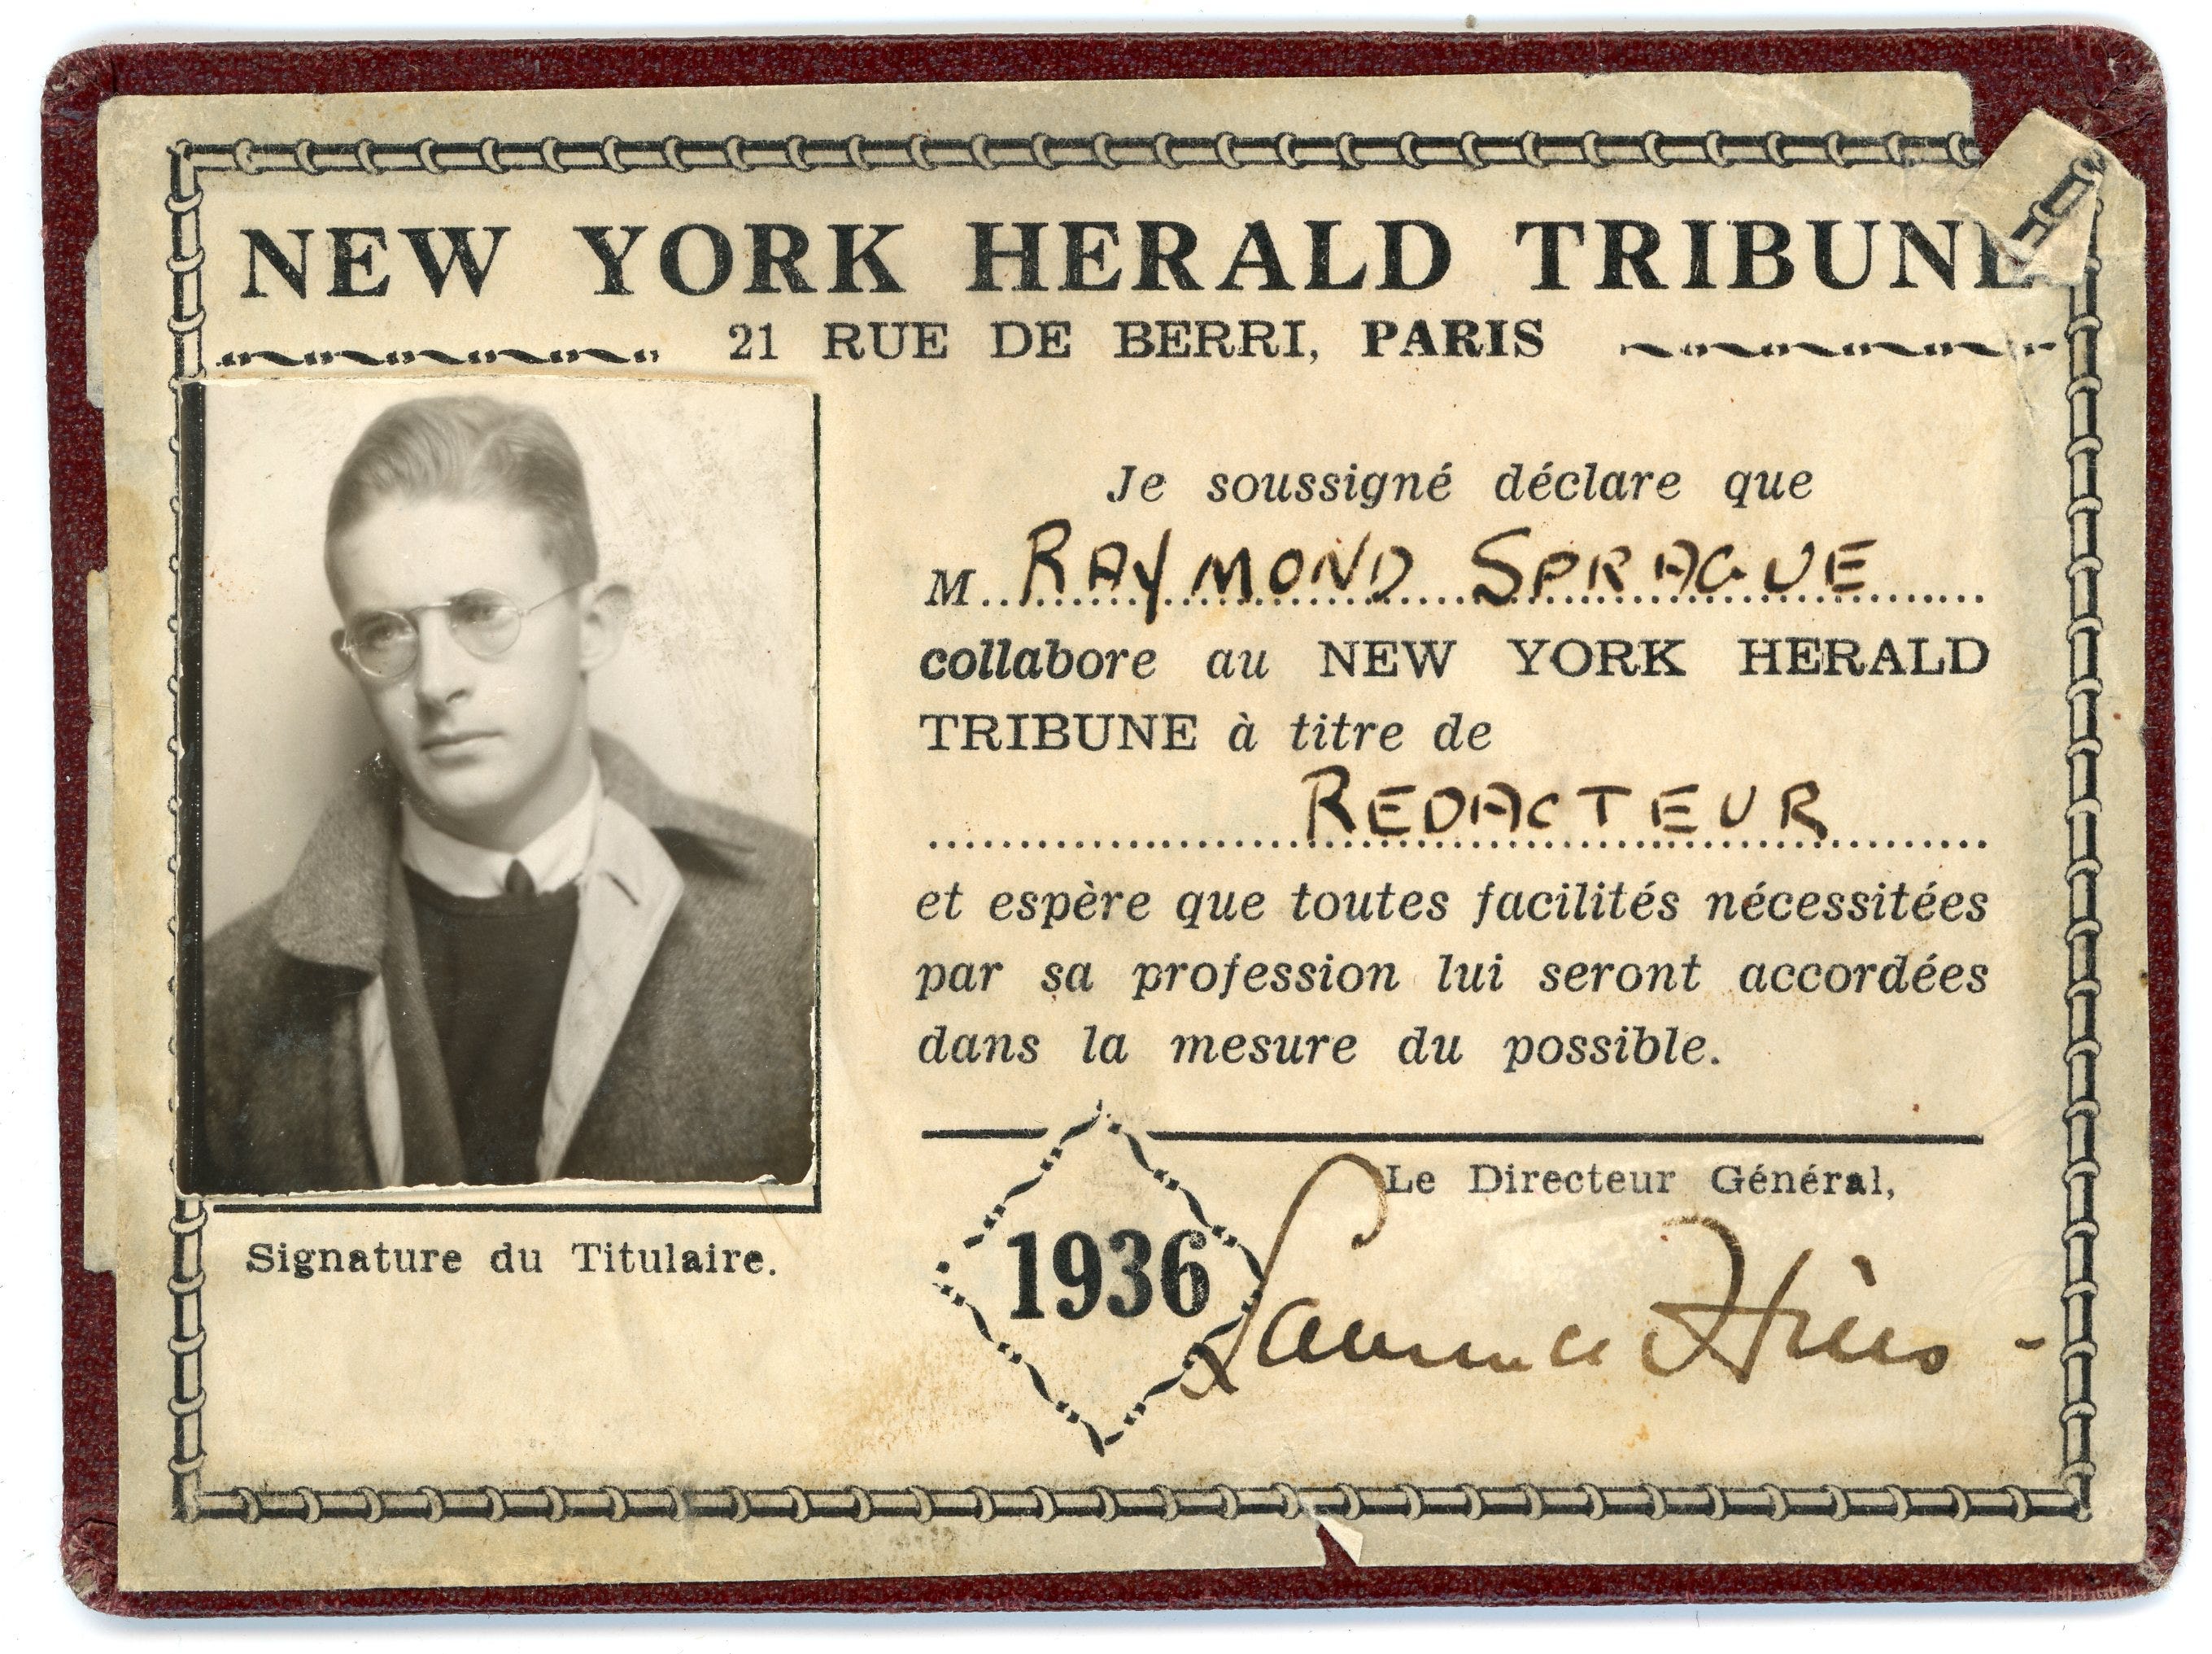 NEW YORK HERALD TRIBUNE
21 RUE DE BERRI, PARIS
Je soussigné déclare que
M. RAYMOND SPRAGUE
collabore au NEW YORK HERALD
TRIBUNE à titre de
REDACTEUR
et espère que toutes facilités nécessitées
par sa profession lui seront accordées
dans la mesure du possible.
Le Directeur Général,
Signature du Titulaire.
1936
Laurence Hills